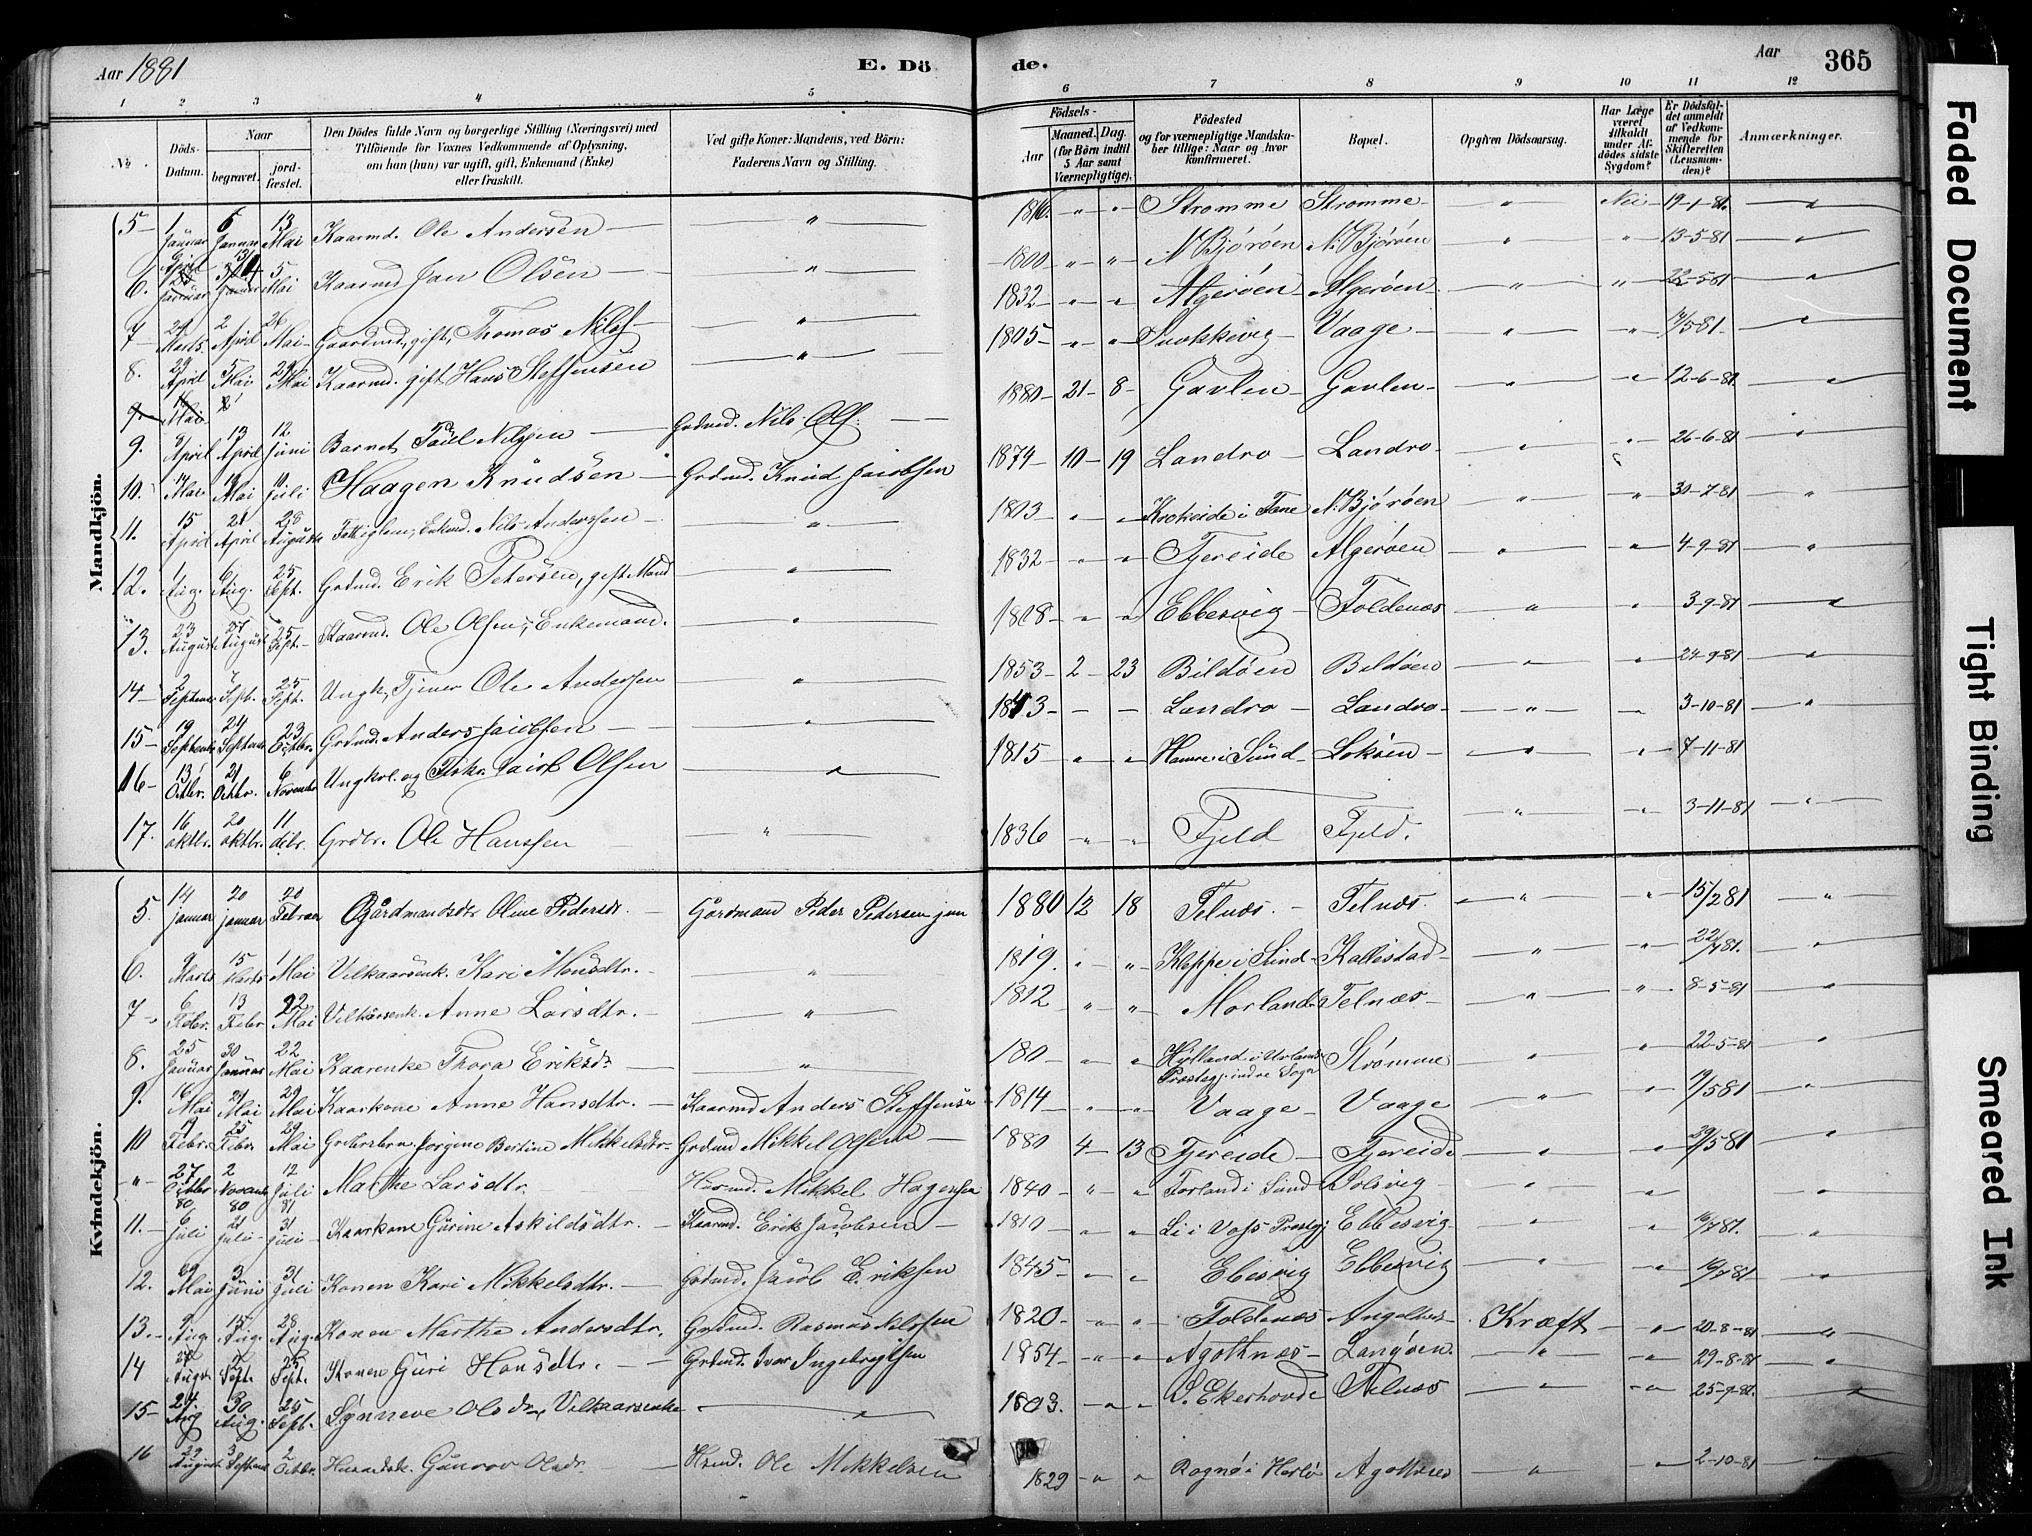 Aar 1881
E. Dö
de.
Aar
365
1 2 3 4 5 6 7 8 9 10 11 12
No
Döds-Datum.
Naar
begravet.
jord-fæstet.
Den Dödes fulde Navn og borgerlige Stilling (Næringsvei) med
Tilföiende for Voxnes Vedkommende af Oplysning,
om han (hun) var ugift, gift, Enkemand (Enke)
eller fraskilt.
Ved gifte Koner: Mandens, ved Börn:
Faderens Navn og Stilling.
Födsels-
Aar
Maaned. Dag.
(for Börn indtil
5 Aar samt
Værnepligtige).
Födested
og for værnepligtige Mandska-
ber tillige: Naar og hvor
konfirmeret.
Bopæl.
Opgiven Dödsaarsag.
Har Læge
været
tilkaldt
under Af-
dödes sidste
Sygdom?
Er Dödsfal-
det anmeldt
af Vedkom-
mende for
Skifteretten
(Lensman-
den)?
Anmærkninger.
Mandkjön.
5- 1 Januar 6 Januar 13 Mai Kaarmd. Ole Andersen " " " Strømme Strømme " Nei 19-1-81. "
6. 5 Mai Kaarmd Jan Olsen " 1800 " " N. Bjørøen N. Bjørøen " " 13-5-81 "
7- 24 Marts 2 April 26 Mai Gaardmd, gift, Thomas Nilss " 1832 " " Algerøen Algerøen " " 22-5-81 "
8. 29 April 5 Mai 29 Mai Kaarmd. gift Hans Steffensen " 1805 " " Vaage " " 19/5 81 "
9. April 13 April 12 Juni Barnet Paul Nilssen Grdmd. Nils Ols. 1880 21 8 Gavlen Gavlen " " 12-6-81 "
10. 14 Mai 19 Mai 10 Juli Haagen Knudsen Grdmd. Knud Jacobsen 1874 10 19 Landro Landro " " 26-6-81 "
11. 15 April 21 April 28 Augusti Fattiglem, Enkmd. Nils Anderssen " 1803 " " Krokeide i Fane N. Bjørøen " " 30-7-81 "
12. 1 Aug. 6 Aug. 25 Sept. Grdmd. Erik Petersen, gift Mand " 1832 " " Tjereide Algerøen " " 4-9-81 "
13. 23 August 27 August 25 Sept. Kaarmd. Ole Olsen, Enkemand. " 1818 " " Ebbesvig Foldenæs " " 3-9-81 "
14 2 Septembr 7 Sept. 25 Sept. Ungk. Tjener Ole Andersen " 1853 2 23 Bildøen Bildøen " " 24-9-81 "
15- 19 Septembr 24 Septembr 23 Octbr. Grdmd. Anders Jacobsen " 1813 - - Landro Landro " " 3-10-81 "
16- 13 Octbr. 21 Octbr. 6 Novembr Ungkrl. og Fisker Jacob Olsen " 1815 " " Hamre i Sund Loksøen " " 7-11-81
17. 16 oktbr. 20 oktbr. 11 dcbr. Grdbr. Ole Hanssen " 1836 " " Fjeld Fjeld. " " 3-11-81 "
Kvindekjön.
5. 14 januar 20 januar 20 Februar Gårdmandsdtr Oline Pedersdr. Gårdmand Peder Pedersen jun 1880 12 18 Telnæs. Telnæs. " " 15/2 81 "
6. 9 Marts 15 Marts 1 Mai Vilkaarsenk. Kari Monsdtr. " 1819. " " Kleppe i Sund Kallestad " " 22/4 81. "
7- 6 Febr. 13 Febr 22 Mai Vilkårsenk. Anne Larsdtr. " 1812 " " Morland Telnæs " " 8-5-81 "
8. 25 Januar 30 Januar 22 Mai Kaarenke Thora Eriksdr " 180 " " Hylland i Urlands Præstegj. indre Sogn Strømme " " 22-5-81 "
9. 6 Mai 21 Mai 29 Mai Kaarkone Anne Hansdtr. Kaarmd Anders Steffensen 1814 " " Vaage Vaage " " 19/5 81 "
10 Febr. 25 Febr 29 Mai Grdbrsbrn Jørgine Bertine Mikkelsdtr Grdmd Mikkel Olsen 1880 4 13 Tjereide Tjereide " " 29/5 81 "
" 27 Octbr 80 2 Novembr 80 12 Juli 81 Marthe Larsdtr. Husmd. Mikkel Hagensen 1840 " " Forland i Sund Solsvig " " "
11. 6 Juli 21 Juli 31 Juli Kaarkone Gurine Askildsdtr. Kaarmd. Erik Jacobsen 1810 " " Li i Voss Prestgj Ebbesvig " " 16/7 81. "
12. 29 Mai 3 Juni 31 Juli Konen Kari Mikkelsdtr. Grdmd. Jacob Eriksen 1845 " " Ebesvig Ebbesvig " " 16/7 81 "
13. 9 Aug. 15 Aug. 28 Aug. Konen Marthe Andersdtr. Grdmd. Rasmus Nilssen 1820 " " Foldenæs Kræft " 20-8-81 "
14 Sept. 25 Sept. Konen Guri Hansdtr. Grdmd. Ivar Ingebrigtsen 1854 " " Agotnæs Langøen. " " 29-8-81 "
15- 24 Aug 30 Aug. 25 Sept. Synneve Olsdr, Vilkaarsenke " 1803. " " Ekerhovde Telnæs " " 25-9-81. "
16 29 August 3 Septembr 2 Octbr. Gunvor Olsdr. Husmd. Ole Mikkelsen 1829 " " Rognø i Herlø Agotnæs " " 2-10-81 "
Faded Document
Tight Binding
Smeared Ink